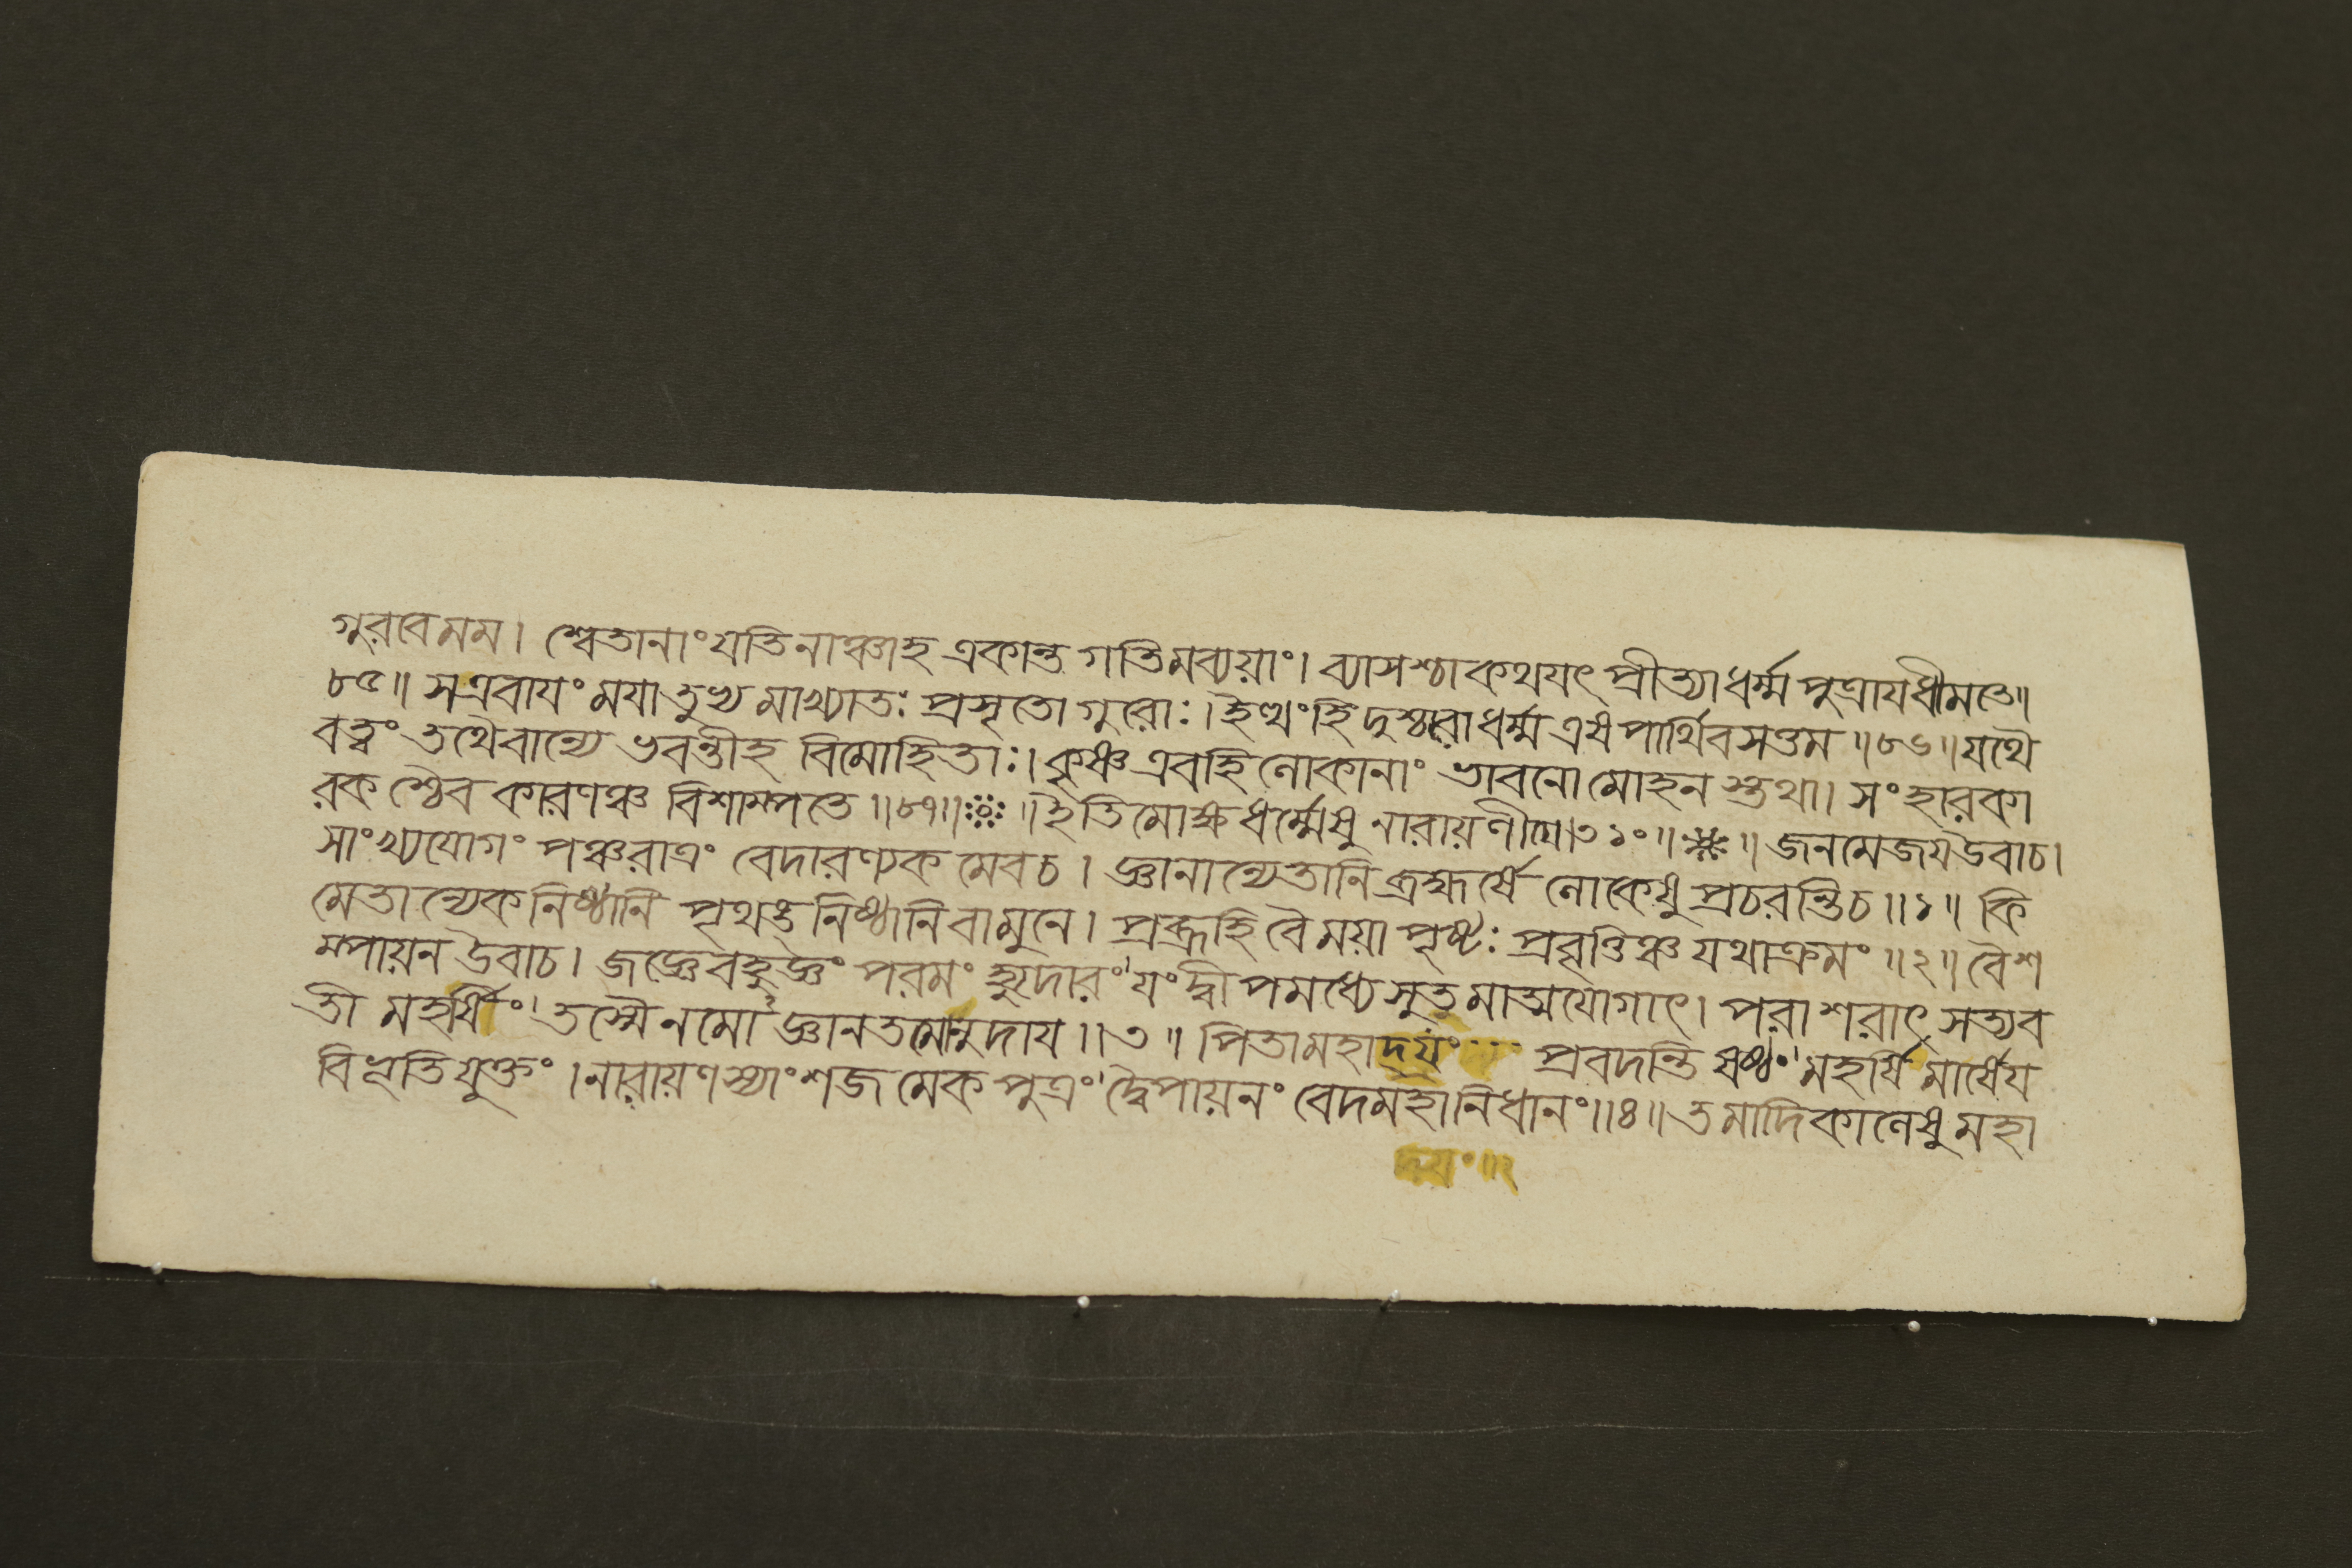 গুরবে মম। শ্বেতানাং যতিনাঞ্চাহ একান্ত গতিমব্যয়াং। ব্যাসশ্চাকথযৎ প্রীত্যা ধর্ম্ম পুত্রায ধীমতে॥
৮৫॥ স এবাযং মযা তুভ্য মাখ্যাতঃ প্রসৃতো গুরোঃ। ইত্থং হি দুশ্চরো ধর্ম্ম এষ পার্থিবসত্তম॥৮৬॥ যথৈ
বত্বং তথৈবান্যে ভবন্তীহ বিমোহিতাঃ। কৃষ্ণ এবহি লোকানাং ভাবনো মোহন স্তথা। সংহারকা
রক শ্চৈব কারণঞ্চ বিশাম্পতে॥৮৭॥ ॥ইতি মোক্ষ ধর্ম্মেষু নারায়ণীযে।৩১০॥ ॥ জনমেজয উবাচ।
সাংখ্যযোগং পঞ্চরাত্রং বেদারণ্যক মেবচ। জ্ঞানান্যেতানি ব্রহ্মর্ষে লোকেষু প্রচরন্তিচ॥১॥ কি
মেতান্যেক নিষ্ঠানি পৃথঙ নিষ্ঠানি বা মুনে। প্রব্রূহি বৈ ময়া পৃষ্টঃ প্রবৃত্তিঞ্চ যথাক্রমং॥২॥ বৈশ
ম্পায়ন উবাচ। জজ্ঞে বহুজ্ঞং পরমং হ্যুদারং যং দ্বীপমধ্যে সুত মাত্মযোগাৎ। পরাশরাৎ সত্যব
তী মহর্ষিং তস্মৈ নমো জ্ঞান তমোনুদায॥৩॥ পিতামহাদ্যং প্রবদন্তি ষষ্ঠং মহর্ষি মার্ষেয
বিভূতি যুক্তং। নারায়ণ স্যাংশজ মেক পুত্রং দ্বৈপায়নং বেদমহানিধানং॥৪॥ তমাদিকালেষু মহা
দ্যং॥২